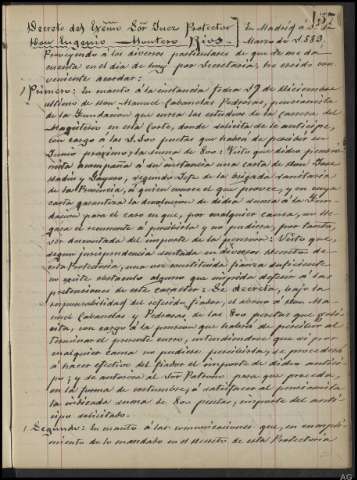 157
Decreto del Excmo Sor Juez Protector
Don Eugenio Montero Ríos
En Madrid a
Marzo de 1889
Proveyendo á los diversos particulares de que se me da
cuenta en el día de hoy por Secretaría, he creido con
veniente acordar:
Primero: En cuanto á la instancia fecha 29 de Diciembre
último de Don Manuel Cabanelas Pedrosas, pensionista
de la Fundacion que cursa los estudios de la carrera del
Magisterio en esta Corte, donde solicita se le anticipe,
con cargo á las pesetas que habrá de percibir en
Junio próximo, la suma de 800: Visto que dicho pensio
nista acompaña á su instancia una carta de Don José
y segundo Jefe de la brigada sanitaria
de la Provincia, á quien conoce el que provee, y en cuya
carta garantiza la devolucion de dicha suma á la Fun
dacion para el caso en que, por cualquier causa, no lle
gara el recurrente á percibirla y no pudiera, por tanto,
ser descontada del importe de la pension: Visto que,
segun jurisprudencia sentada en diversos decretos de
esta Protectoría, una vez constituida fianza suficiente
no existe obstáculo alguno que impida deferir á las
pretensiones de este caracter: Se decreta, bajo la
responsabilidad del referido fiador, el abono á Don Ma
nuel Cabanelas y Pedrosas, de las 800 pesetas que soli
cita, con cargo á la pension que habrá de percibir al
terminar el presente curso, entendiendose que si por
cualquier causa no pudiese percibirla, se procederá
á hacer efectivo del fiador el importe de dicho antici
po; y se autoriza al Sor Patrono para que proceda,
en la forma de costumbre, á satisfacer al pensionista
la indicada suma de 800 pesetas, importe del anti
cipo solicitado.
Segundo: En cuanto á las comunicaciones que, en cumpli
miento de lo mandado en el decreto de esta Protectoría
AG